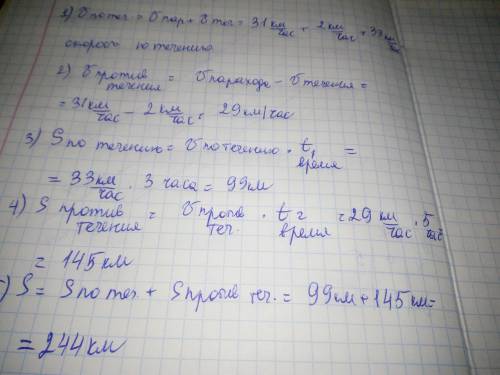 1) V по теч = V пар + V теч = 31 км/час + 2 км/час = 33 км/час
скорость по течению
2) V против течения = V парахода - V течения =
= 31 км/час - 2 км/час = 29 км/час
3) S по течению = V по течению · t, время =
= 33 км/час · 3 часа = 99 км
4) S против течения = V против теч. · t 2 время = 29 км/час · 5 час
= 145 км
) S = S по теч. + S против теч. = 99 км + 145 км =
= 244 км